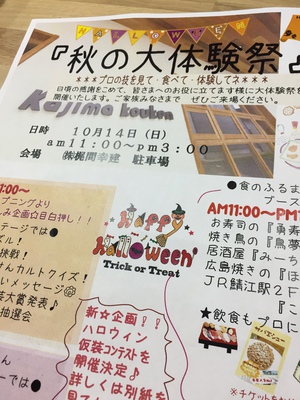 HALLOWEEN
『秋の大体験祭』
***プロの技を見て・食べて・体験してネ***
日頃の感謝をこめて、皆さまへのお役に立てます様に大体験祭を
開催いたします。ご家族みなさまで ぜひご来場ください。
Kajima kouken
日時 10月14日(日)
am11:00～pm3:00
会場 ㈱梶間幸建 駐車場
:00～
プニングより
み企画◎目白押し!!
テージでは●
ズル!
挑戦!
さんカルトクイズ!
いメッセージ
芸大賞発表♪
抽選会
Happy
Halloween
Trick or Treat
新☆企画!!
ハロウィン
仮装コンテストを
開催決定♪
詳しくは別紙を
●食のふるま
ブース
AM11:00～PM1
お寿司の『勇寿
焼き鳥の『鳥夢
居酒屋『みーち
広島焼きの『ほ
JR鯖江駅2F
『こ
★飲食もプロに
サバエシュー
※チケットをお